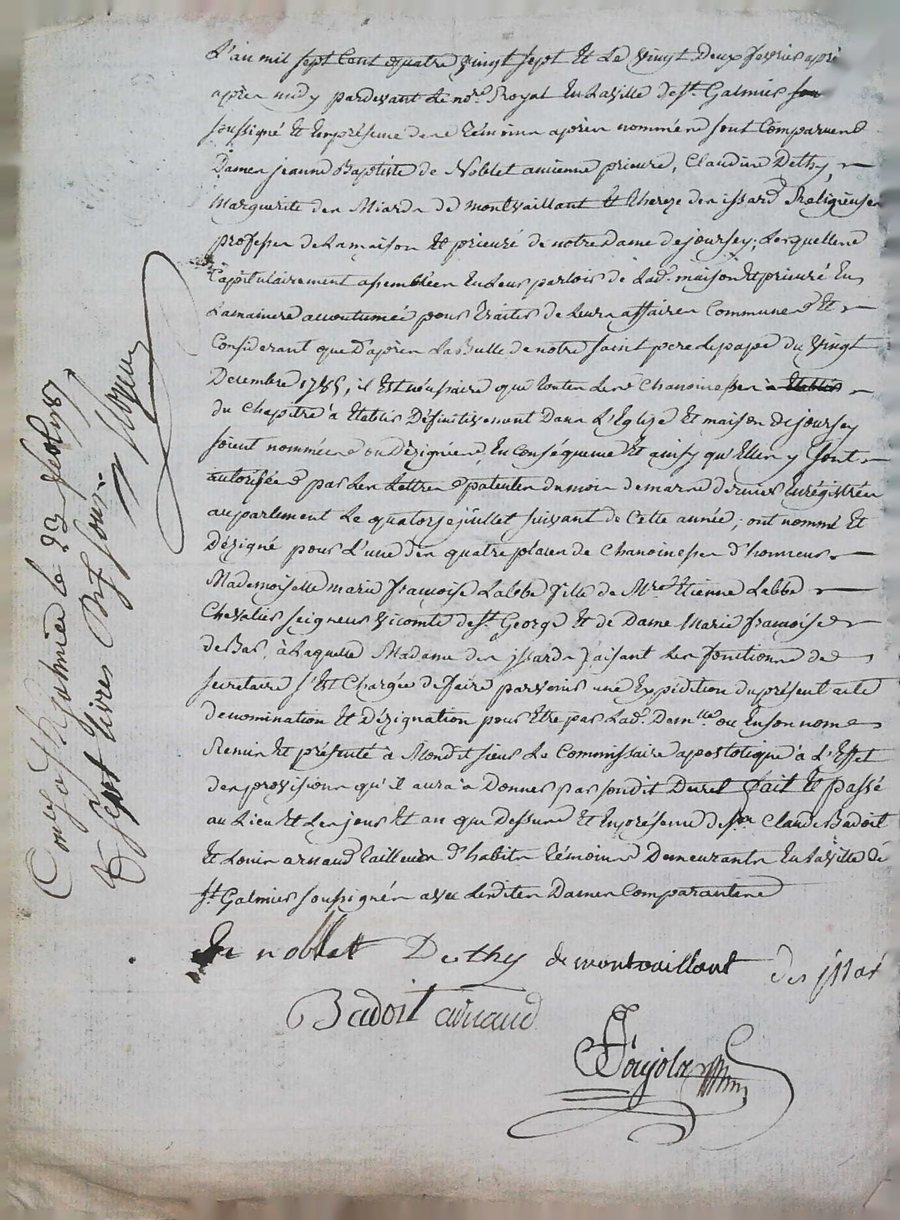 L'an mil sept Cent quatre vingt sept Et Le vingt Deux fevrier
apres midy pardevant Le nore. Royal En La ville de St. Galmier
soussigné Et En presence des temoins apres nommés sont Comparues
Dames jeanne Baptiste de Noblet ancienne prieure, Claudine Dethy,
Marguerite des Miards de montvaillant Et thereze des issards Religieuses
professes de La maison Et prieuré de notre Dame de joursey; Lesquelles
Capitulairement assemblées En Leur parloir de Lad. maison Et prieuré En
La maniere accoutumée pour traiter de Leurs affaires Communes Et
Considerant que D'après La Bulle de notre saint pere Le pape du vingt
Decembre il Est nécessaire que toutes Les Chanoinesses
du Chapitre à Etablir Définitivement Dans L'Eglise Et maison de joursey
soient nommées ou Désignées, En Conséquence Et ainsy qu'Elles y sont
autorisées par Les Lettres patentes du mois de mars dernier Enrégistrées
au parlement Le quatorze juillet suivant de Cette année, ont nommé Et
Désigné pour L'une des quatre places de Chanoinesses d'honneur
Mademoiselle marie françoise Labbe fille de Mre. Etienne Labbe
Chevalier seigneur vicomte de St. George Et de Dame Marie françoise
de Bar, à Laquelle Madame des jssards faisant Les fonctions de
secretaire s'Est Chargée de faire parvenir une Expédition du présent acte
de nomination Et Désignation pour Etre par Lad. Demlle. ou En son nom
Remis Et présenté à Mondit sieur Le Commissaire apostolique à L'Effet
des provisions qu'il aura à Donner par sondit fait Et passé
au Lieu Et Les jour Et an que Dessus Et En présence de Claude Badoit
Et Louis arnaud tailleurs d'habits témoins Demeurants En La ville de
St. Galmier soussignés avec Lesdites Dames Comparantes
De noblet Dethy de montvaillant des jssar
Badoit arnaud
Controlé à St. Galmier le 23
sept livres dix sous